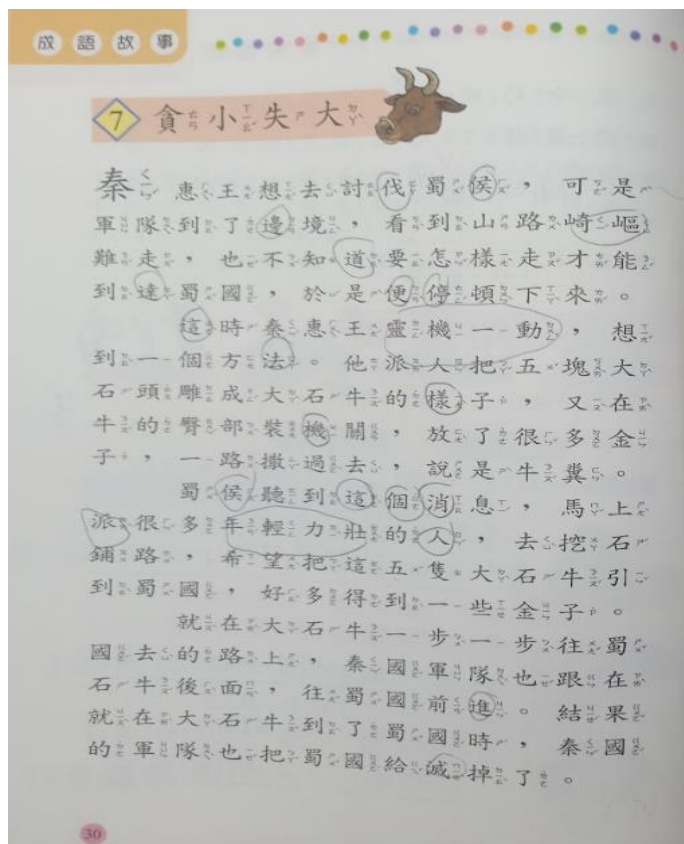 成語故事
7 貪小失大
秦惠王想去討伐蜀侯，可是
軍隊到了邊境，看到山路崎嶇
難走，也不知道要怎樣走才能
到達蜀國，於是便停頓下來。
這時秦惠王靈機一動，想
到一個方法。他派人把五塊大
石頭雕成大石牛的樣子，又在
牛的臀部裝機關，放了很多金
子，一路撒過去，說是牛糞。
蜀侯聽到這個消息，馬上
派很多年輕力壯的人，去挖石
鋪路，希望把這五隻大石牛引
到蜀國，好多得到一些金子。
就在大石牛一步一步往蜀
國去的路上，秦國軍隊也跟在
石牛後面，往蜀國前進。結果
就在大石牛到了蜀國時，秦國
的軍隊也把蜀國給滅掉了。
30